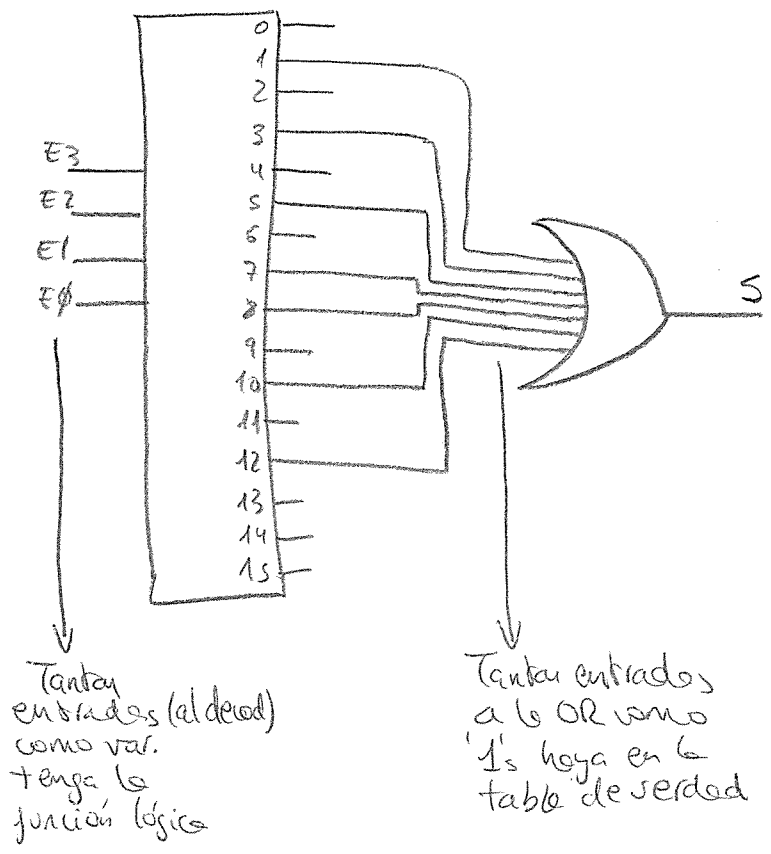 0
1
2
3
4
5
6
7
8
9
10
11
12
13
14
15
E3
E2
E1
E0
S
Tantas
entradas (al decod)
como var.
tenga la
función lógica
Tantas entradas
a la OR como
'1's haya en la
tabla de verdad